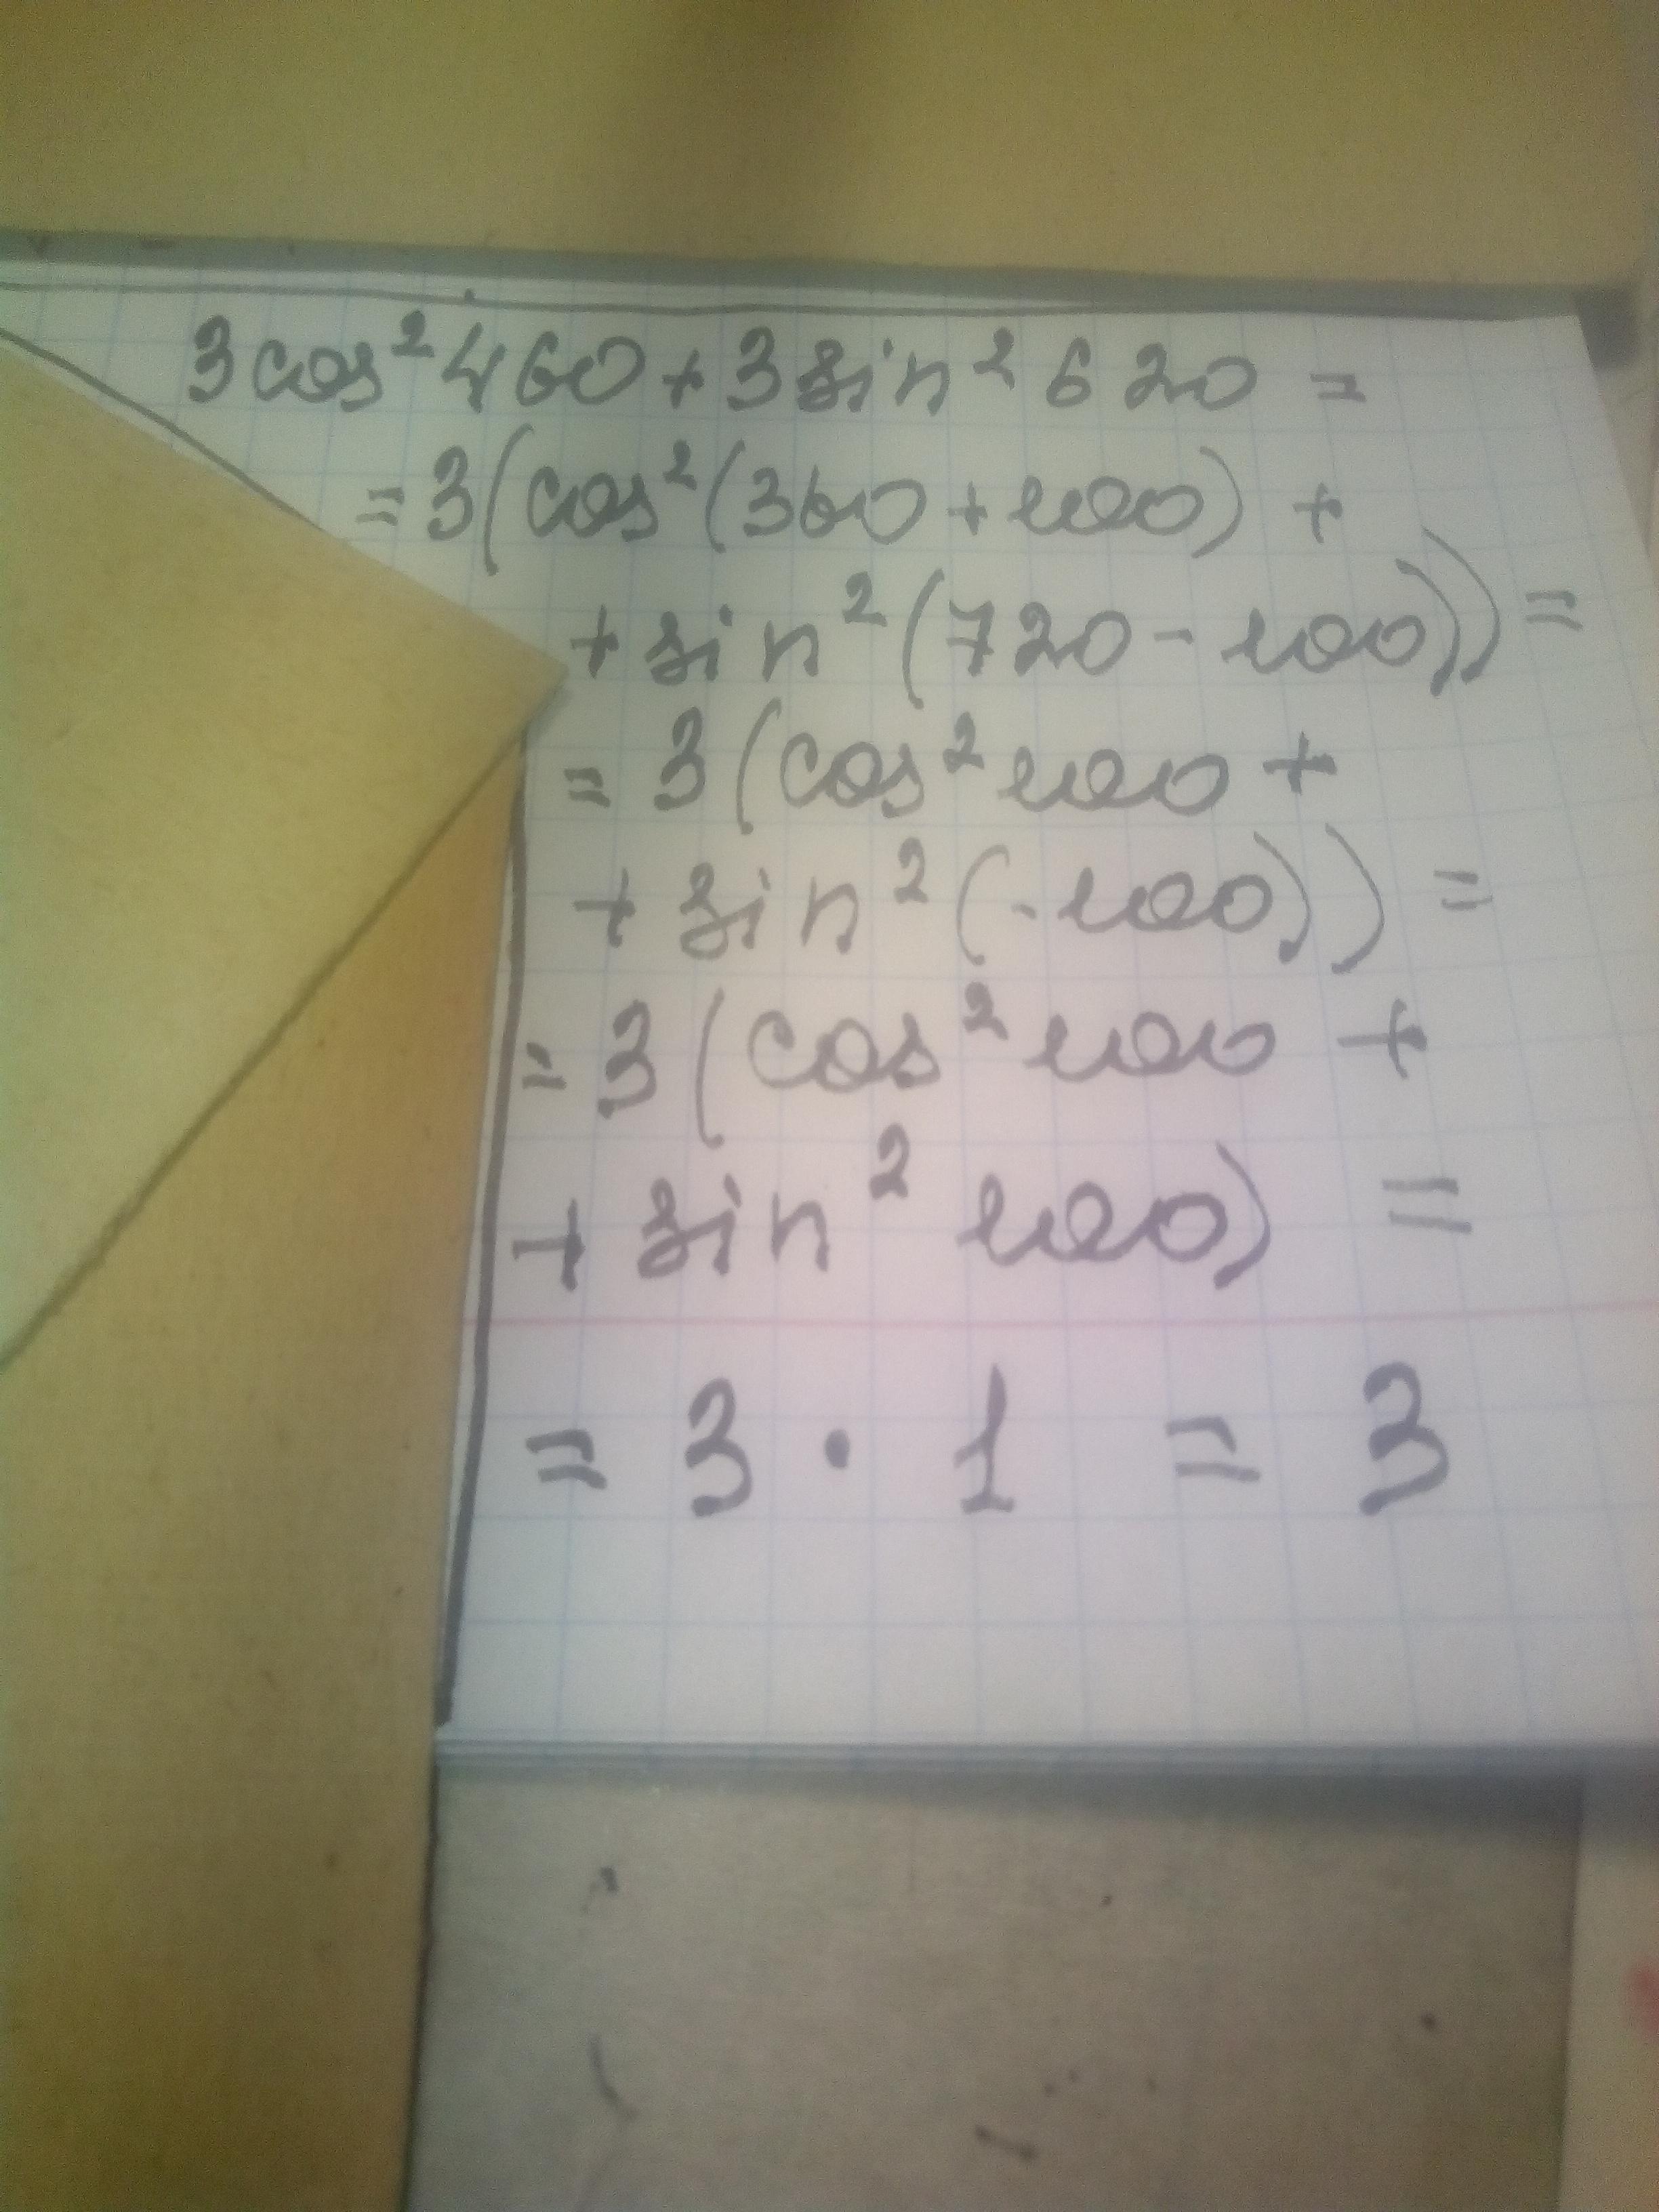 3cos²460+3sin²620=
=3(cos²(360+100)+
+sin²(720-100))=
=3(cos²100+
+sin²(-100))=
=3(cos²100+
+sin²100)=
=3·1=3